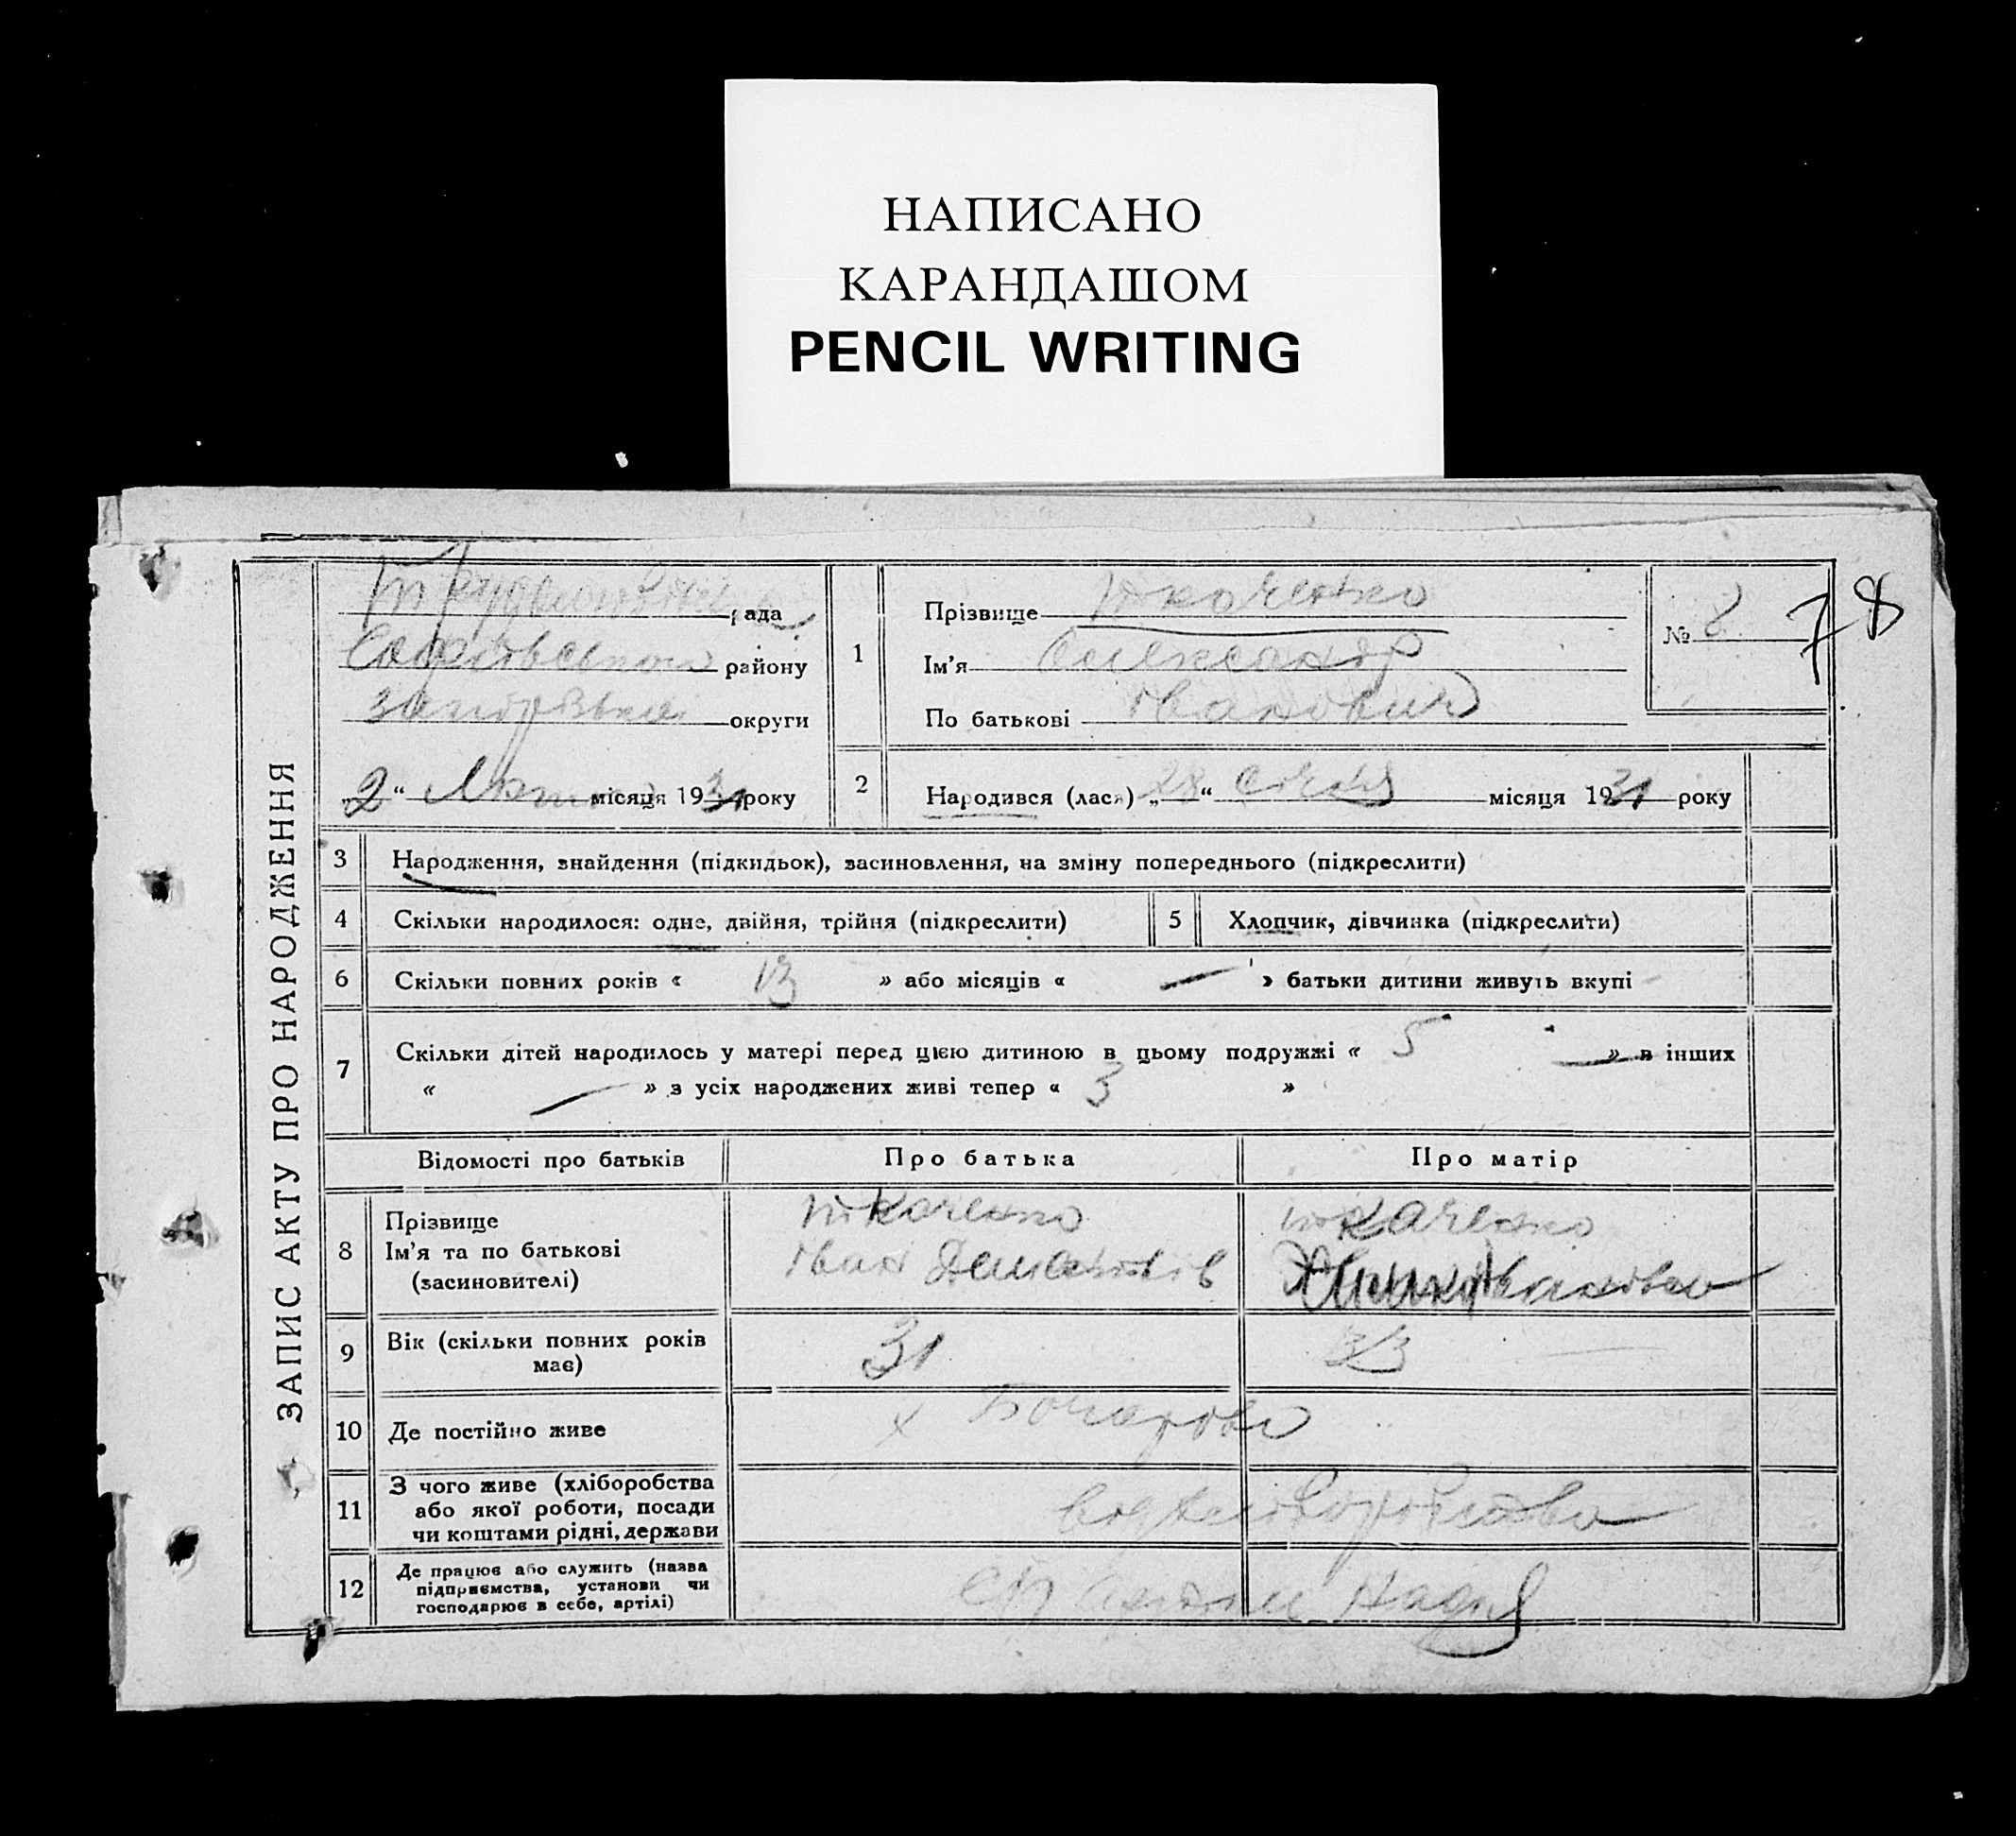 НАПИСАНО
КАРАНДАШОМ
PENCIL WRITING
ЗАПИС АКТУ ПРО НАРОДЖЕННЯ
рада
району
округи
„2“ Лютого місяця 1931 року
1
Прізвище Ткаченко
Ім’я Олександр
По батькові Іванович
№ 8
78
2
Народився (лася) „28“ Січня місяця 1931 року
3 Народження, знайдення (підкидьок), засиновлення, на зміну попереднього (підкреслити)
4 Скільки народилося: одне, двійня, трійня (підкреслити)
5 Хлопчик, дівчинка (підкреслити)
6 Скільки повних років « 13 » або місяців « — » батьки дитини живуть вкупі
7 Скільки дітей народилось у матері перед цією дитиною в цьому подружжі « 5 » в інших
« — » з усіх народжених живі тепер « 3 »
Відомості про батьків
Про батька
Про матір
8
Прізвище
Ім’я та по батькові
(засиновителі)
Ткаченко
Іван
ткаченко
Іванівна
9
Вік (скільки повних років
має)
31
33
10 Де постійно живе
х Бочарово
11
З чого живе (хліборобства
або якої роботи, посади
чи коштами рідні, держави
12
Де працює або служить (назва
підприємства, установи чи
господарює в себе, артілі)